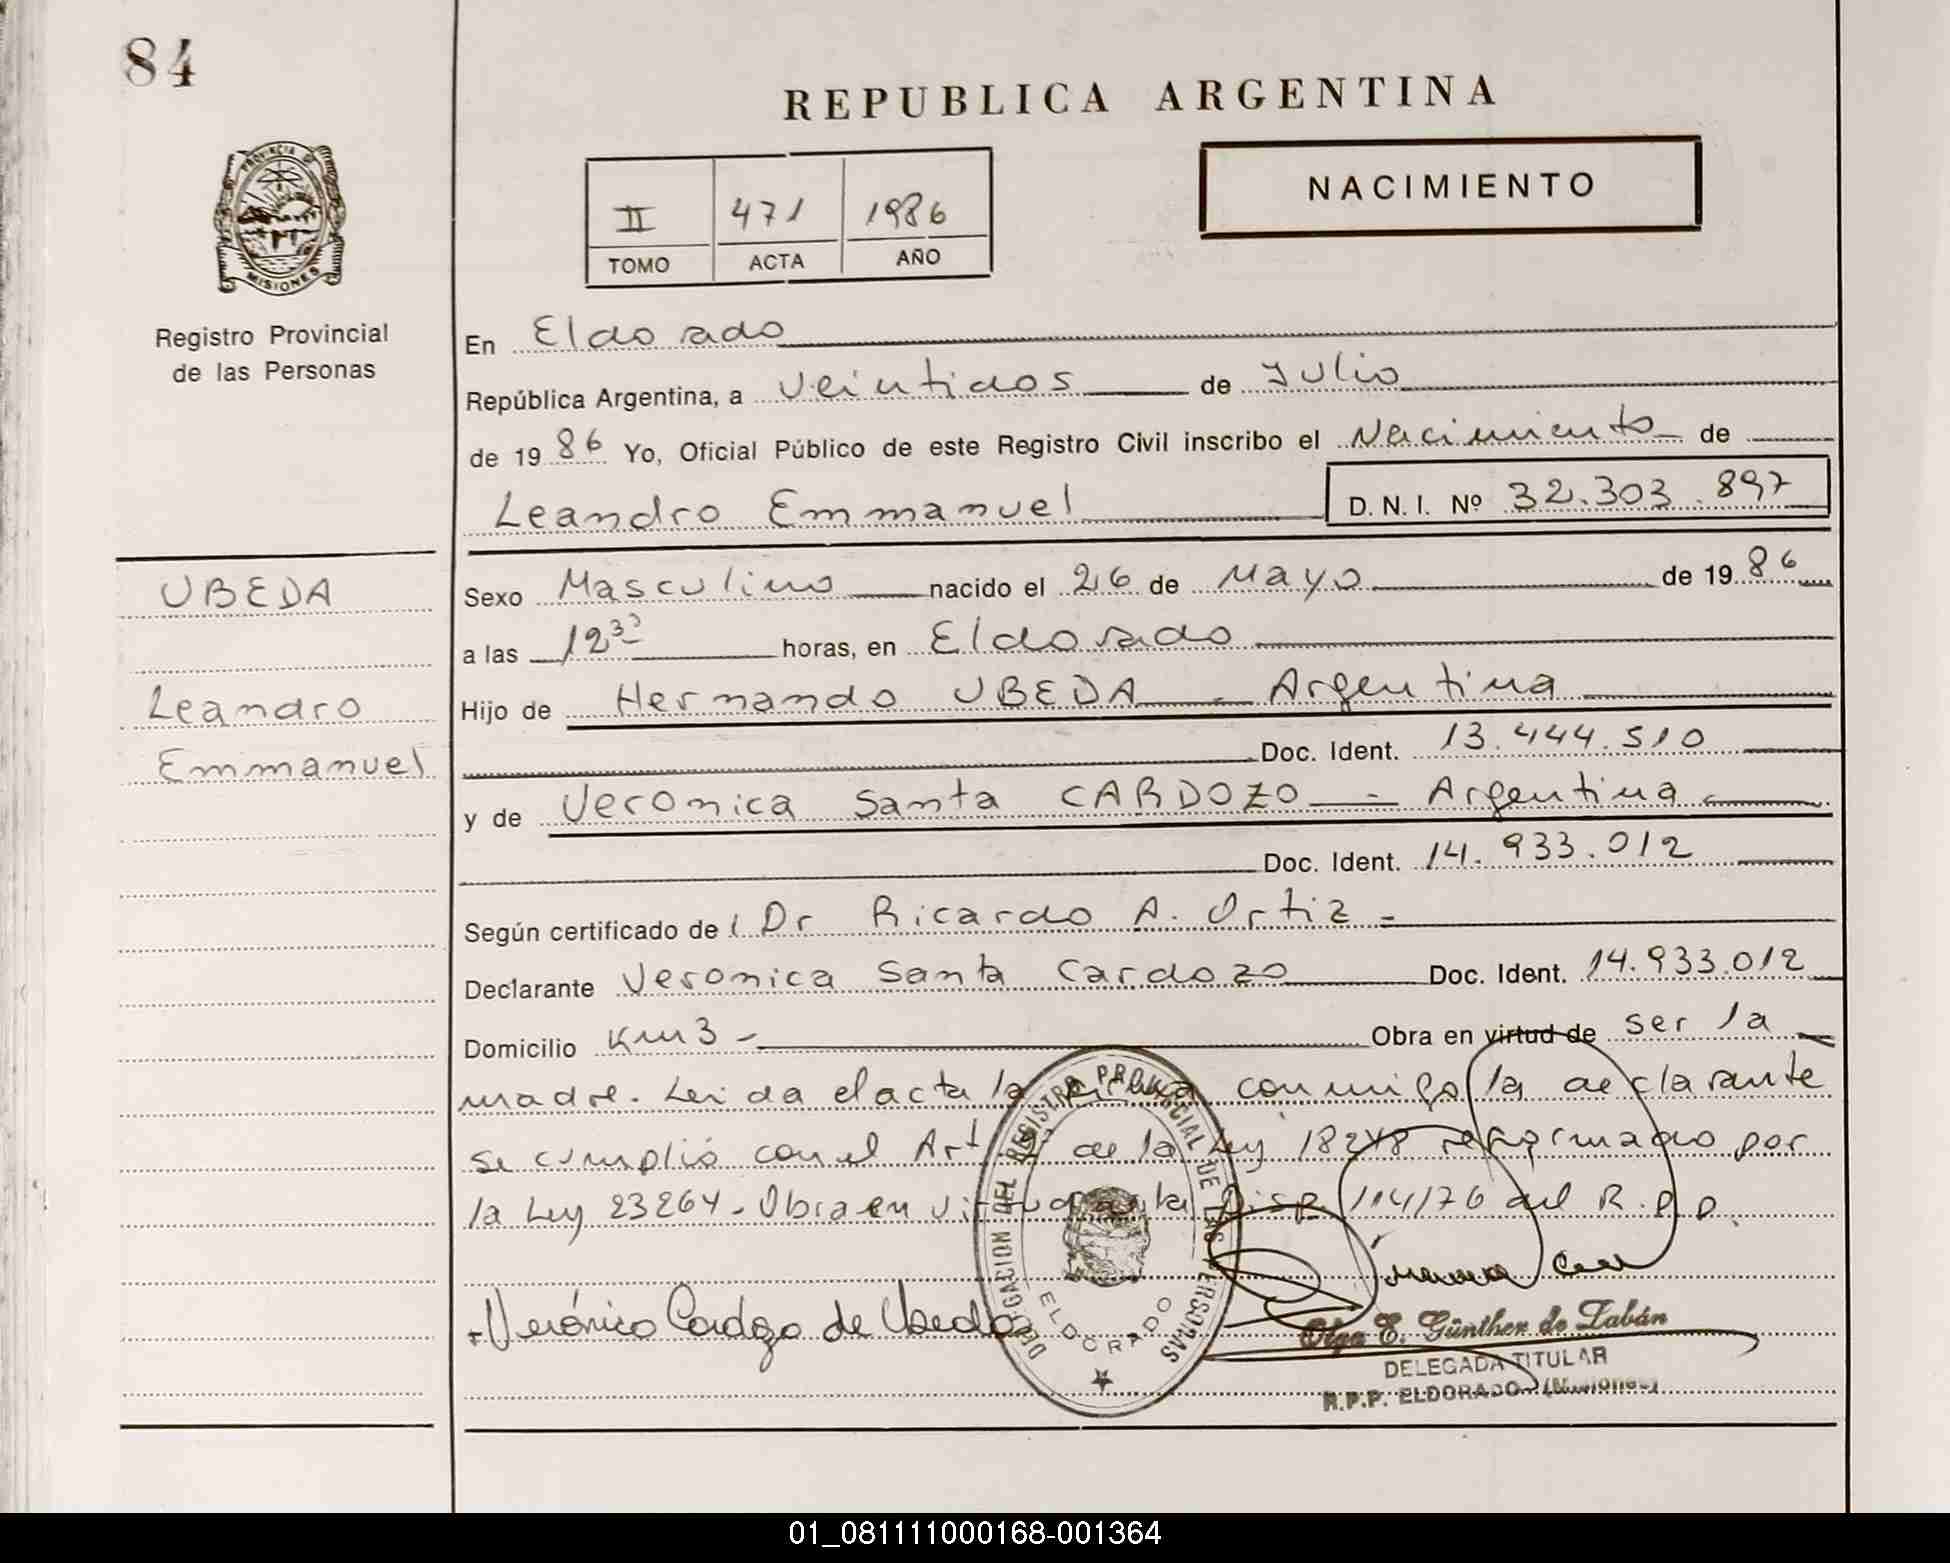 84
REPUBLICA ARGENTINA
PROVINCIA DE MISIONES
II 471 1986
TOMO ACTA AÑO
NACIMIENTO
Registro Provincial
de las Personas
En Eldorado
República Argentina, a veintidos de Julio
de 1986 Yo, Oficial Público de este Registro Civil inscribo el Nacimiento de
Leandro Emmanuel D. N. I. Nº 32.303.897
UBEDA
Leandro
Emmanuel
Sexo Masculino nacido el 26 de Mayo de 1986
a las 12 30 horas, en Eldorado
Hijo de Hernando UBEDA - Argentina
Doc. Ident. 13.444.510
y de Veronica Santa CARDOZO - Argentina
Doc. Ident. 14.933.012
Según certificado de l Dr Ricardo A. Ortiz -
Declarante Veronica Santa Cardozo Doc. Ident. 14.933.012
Domicilio Km 3 - Obra en virtud de ser la
madre. Leida el acta la firma conmigo la declarante
se cumplió con el Art de la Ley 18248 reformado por
la Ley 23264 - Obra en virtud de la Disp. 114/76 del R.P.P.
Verónica Cardozo de Ubeda
DELEGACION DEL REGISTRO PROVINCIAL DE LAS PERSONAS
ELDORADO
Olga E. Günther de Zabán
DELEGADA TITULAR
R.P.P. ELDORADO (Misiones)
01_081111000168-001364